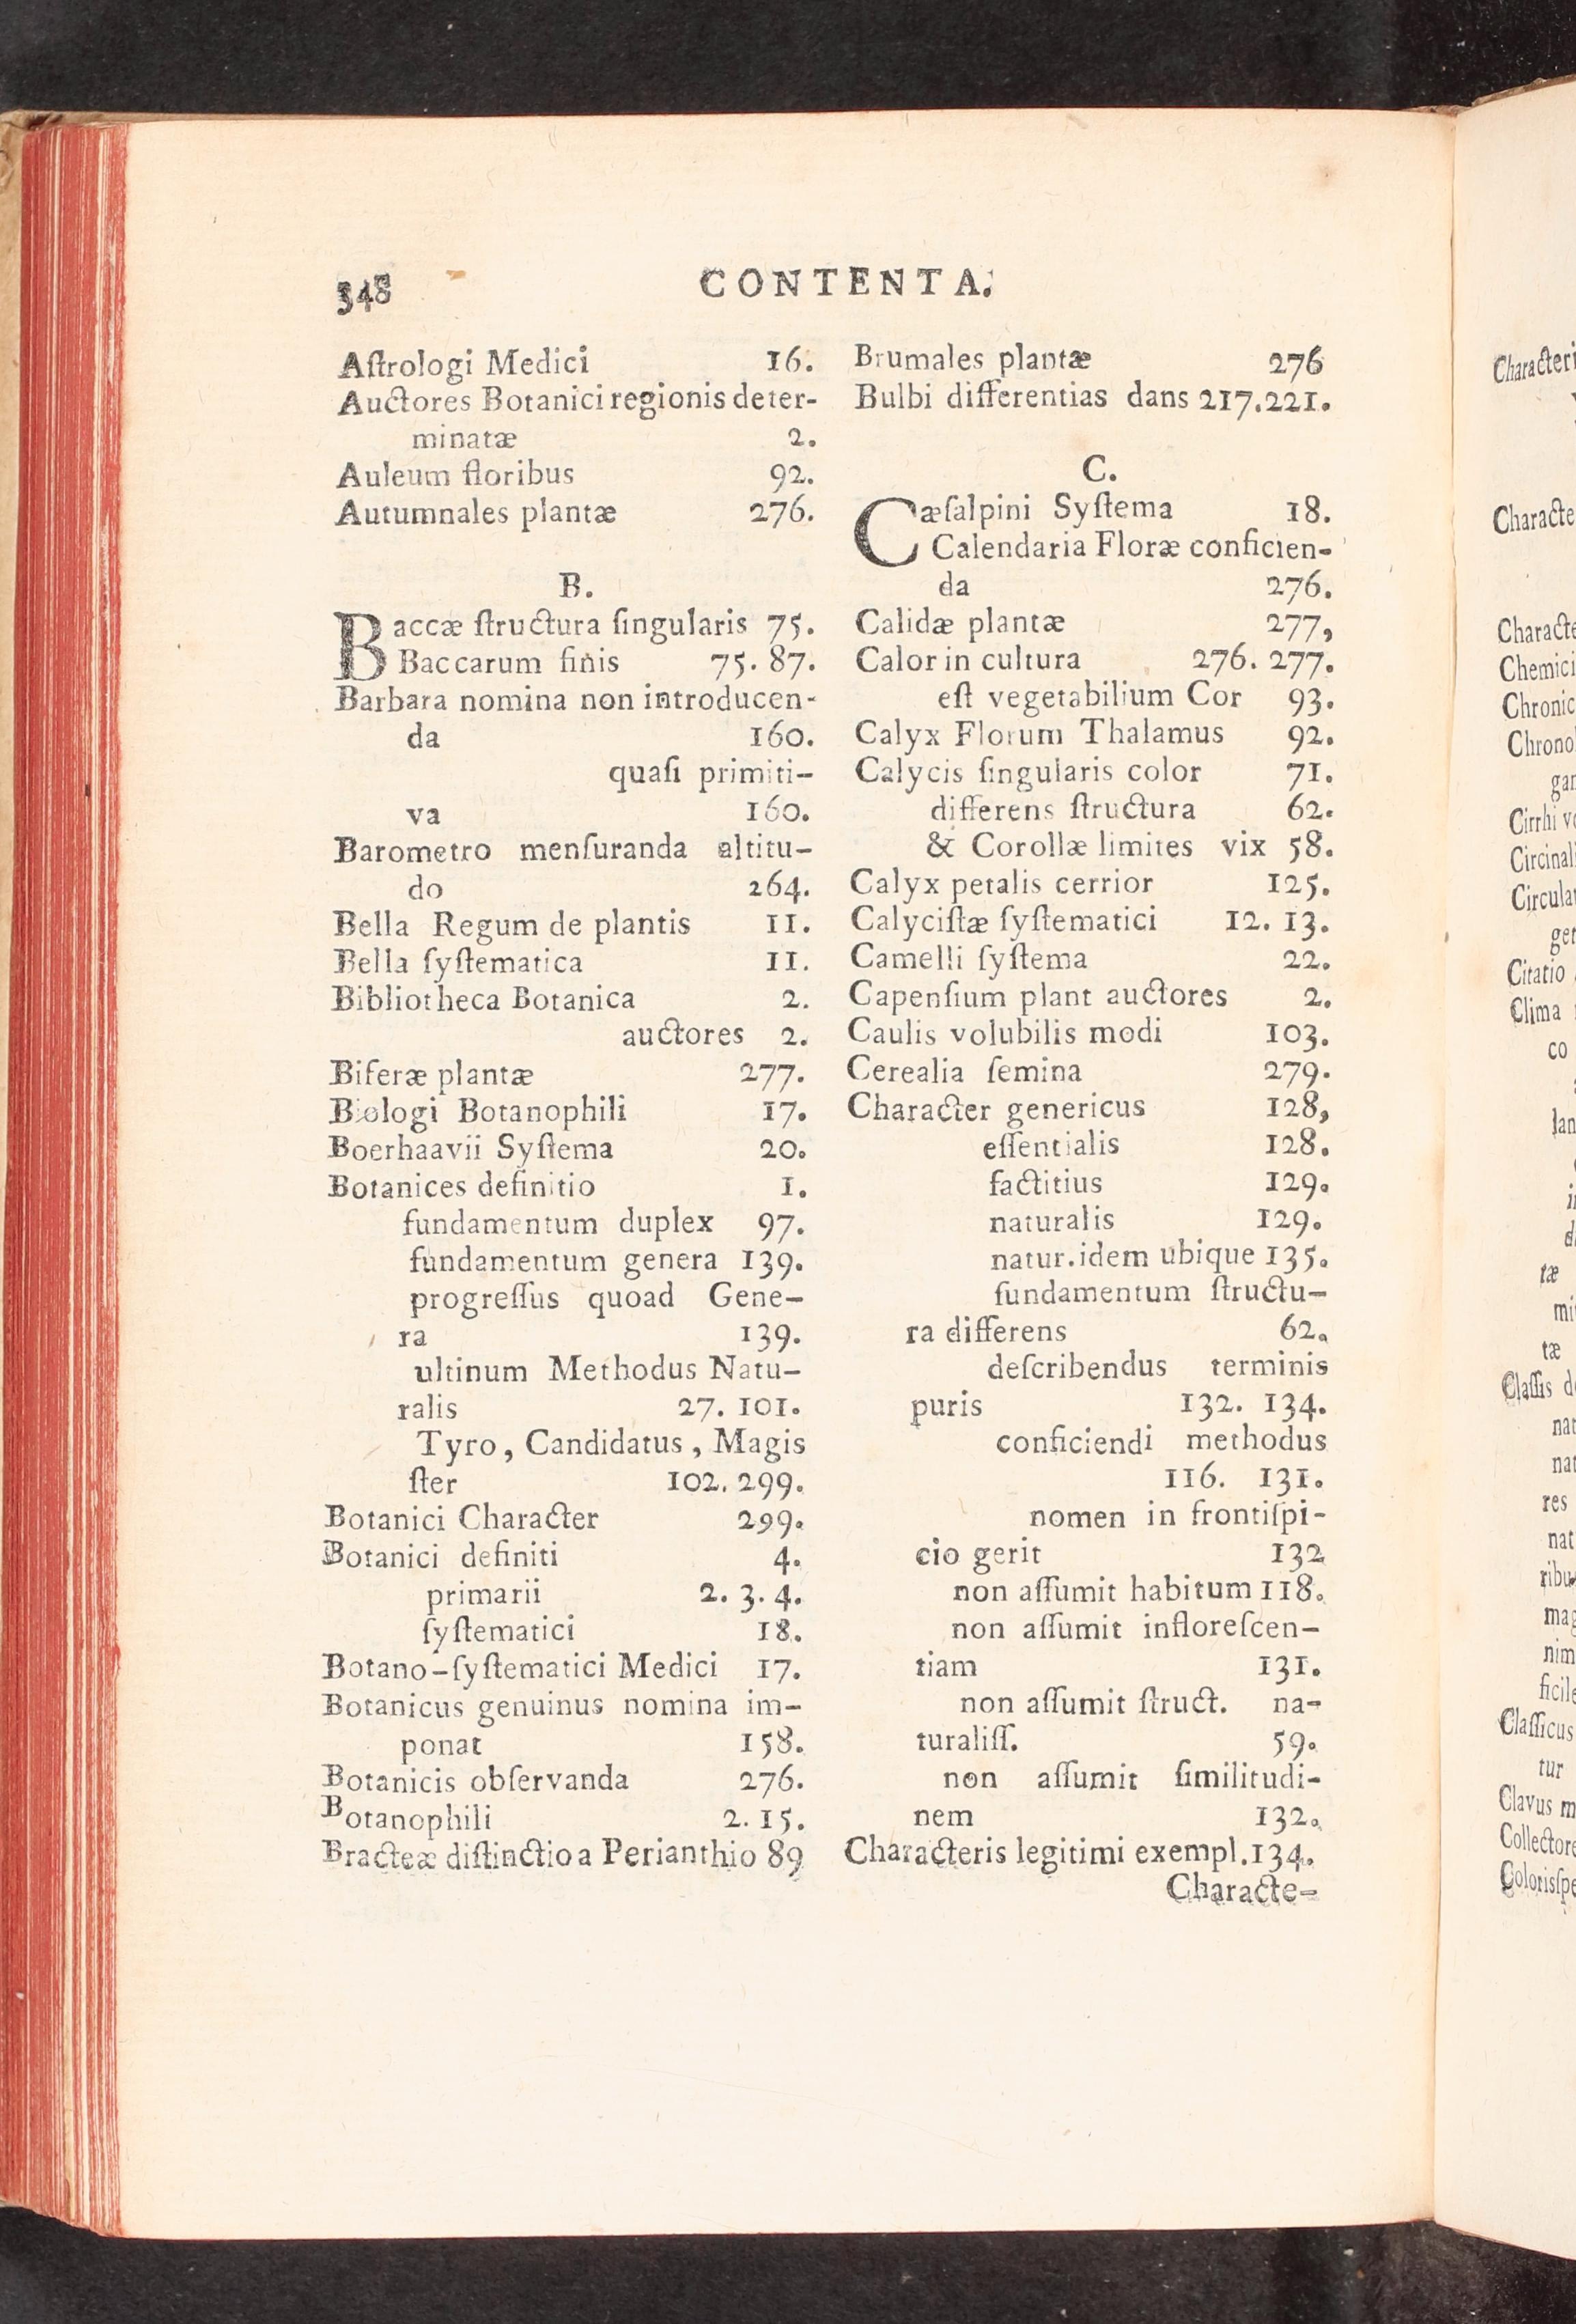 348 CONTENTA.
Aſtrologi Medici 16.
Auctores Botanici regionis deter-
minatæ 2.
Auleum floribus 92.
Autumnales plantæ 276.
B.
Baccæ ſtructura ſingularis 75.
Baccarum finis 75. 87.
Barbara nomina non introducen-
da 160.
quaſi primiti-
va 160.
Barometro menſuranda altitu-
do 264.
Bella Regum de plantis 11.
Bella ſyſtematica 11.
Bibliotheca Botanica 2.
auctores 2.
Biferæ plantæ 277.
Biologi Botanophili 17.
Boerhaavii Syſtema 20.
Botanices definitio 1.
fundamentum duplex 97.
fundamentum genera 139.
progreſſus quoad Gene-
ra 139.
ultinum Methodus Natu-
ralis 27. 101.
Tyro, Candidatus, Magis
ſter 102. 299.
Botanici Character 299.
Botanici definiti 4.
primarii 2. 3. 4.
ſyſtematici 18.
Botano-ſyſtematici Medici 17.
Botanicus genuinus nomina im-
ponat 158.
Botanicis obſervanda 276.
Botanophili 2. 15.
Bracteæ diſtinctio a Perianthio 89
Brumales plantæ 276
Bulbi differentias dans 217.221.
C.
Cæſalpini Syſtema 18.
Calendaria Floræ conficien-
da 276.
Calidæ plantæ 277,
Calor in cultura 276. 277.
eſt vegetabilium Cor 93.
Calyx Florum Thalamus 92.
Calycis ſingularis color 71.
differens ſtructura 62.
& Corollæ limites vix 58.
Calyx petalis cerrior 125.
Calyciſtæ ſyſtematici 12. 13.
Camelli ſyſtema 22.
Capenſium plant auctores 2.
Caulis volubilis modi 103.
Cerealia ſemina 279.
Character genericus 128,
eſſentialis 128.
factitius 129.
naturalis 129.
natur. idem ubique 135.
fundamentum ſtructu-
ra differens 62.
deſcribendus terminis
puris 132. 134.
conficiendi methodus
116. 131.
nomen in frontiſpi-
cio gerit 132
non aſſumit habitum 118.
non aſſumit infloreſcen-
tiam 131.
non aſſumit ſtruct. na-
turaliſſ. 59.
non aſſumit ſimilitudi-
nem 132.
Characteris legitimi exempl.134.
Characte-
Characteri
Characte
Characte
Chemici
Chronic
Chronol
gan
Cirrhi vo
Circinali
Circular
get
Citatio
Clima
co
lan
tæ
mi
tæ
Claſſis d
nat
nat
res
nat
ribu
mag
nim
ficile
Claſſicus
tur
Clavus m
Collectore
Colorisſpe